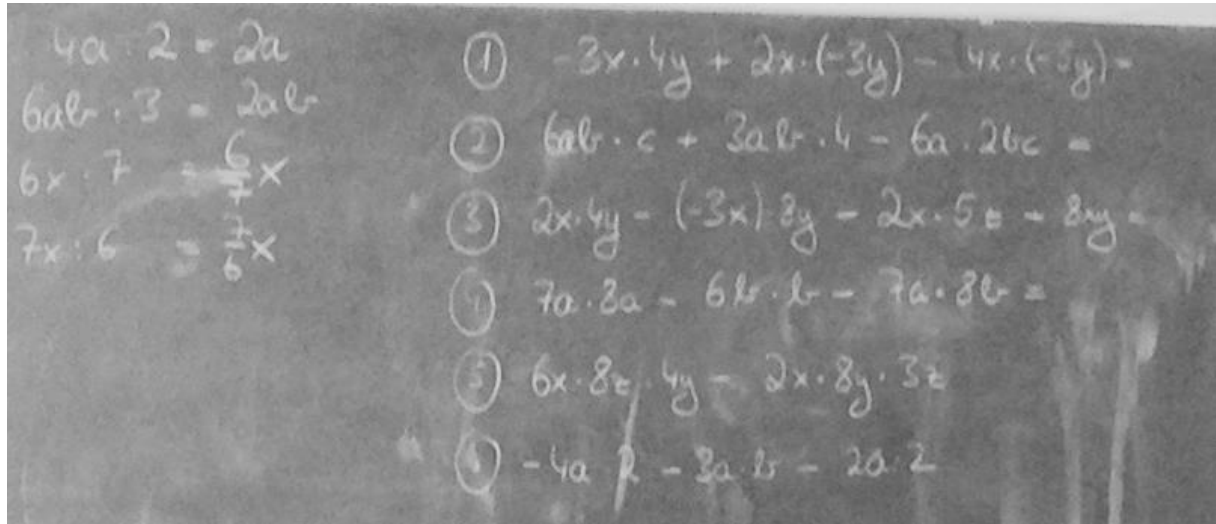 4a : 2 = 2a
6ab : 3 = 2ab
6x : 7 = 6/7 x
7x : 6 = 7/6 x
① -3x·4y + 2x·(-3y) - 4x·(-5y) =
② 6ab·c + 3ab·4 - 6a·2bc =
③ 2x·4y - (-3x)·8y - 2x·5z - 8xy =
④ 7a·8a - 6b·b - 7a·8b =
⑤ 6x·8z·4y - 2x·8y·3z
⑥ -4a·2 - 3a·b - 2a·2